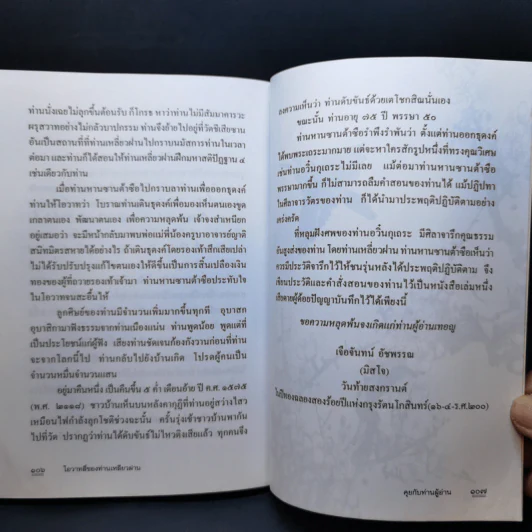 ท่านนั่งเฉยไม่ลุกขึ้นต้อนรับ ก็โกรธ หาว่าท่านไม่มีสัมมาคารวะ
ผรุสวาทอย่างไม่กลัวบาปกรรม ท่านจึงย้ายไปอยู่ที่วัดซีเสียซาน
อันเป็นสถานที่ที่ท่านเหลี่ยวฝานไปกราบนมัสการท่านในเวลา
ต่อมา และท่านก็ได้สอนให้ท่านเหลี่ยวฝานฝึกมหาสติปัฏฐาน ๔
เช่นเดียวกับท่าน
เมื่อท่านหานซานต้าซือไปกราบลาท่านเพื่อออกธุดงค์
ท่านให้โอวาทว่า โบราณท่านเดินธุดงค์เพื่อมองเห็นตนเอง ขูด
เกลาตนเอง พัฒนาตนเอง เพื่อความหลุดพ้น เจ้าจงสำเหนียก
อยู่เสมอว่า จะมีหน้ากลับมาพบพ่อแม่พี่น้องครูบาอาจารย์ญาติ
สนิทมิตรสหายได้อย่างไร ถ้าเดินธุดงค์โดยรองเท้าสึกเสียเปล่า
ไม่ได้ปรับปรุงแก้ไขตนเองให้ดีขึ้นเป็นการสิ้นเปลืองเงิน
ทองของผู้ที่ถวายรองเท้าเจ้ามา ท่านหานซานต้าซือประทับใจ
ในโอวาทจนสะอื้นไห้
ลูกศิษย์ของท่านมีจำนวนเพิ่มมากขึ้นทุกที อุบาสก
อุบาสิกามาฟังธรรมจากท่านเนืองแน่น ท่านพูดน้อย พูดแต่ที่
เป็นประโยชน์แก่ผู้ฟัง เสียงท่านชัดเจนก้องกังวานก่อนที่ท่าน
จะจากโลกนี้ไป ท่านกลับไปยังบ้านเกิด โปรดผู้คนเป็น
จำนวนหมื่นจำนวนแสน
อยู่มาคืนหนึ่ง เป็นคืนขึ้น ๕ ค่ำ เดือนอ้าย ปี ค.ศ. ๑๕๗๕
(พ.ศ. ๒๑๑๘) ชาวบ้านเห็นบนหลังคากุฏิที่ท่านอยู่สว่างไสว
เหมือนไฟกำลังลุกโชติช่วงฉะนั้น ครั้นรุ่งเช้าชาวบ้านพากัน
ไปที่วัด ปรากฏว่าท่านได้ดับขันธ์ไม่ไหวติงเสียแล้ว ทุกคนจึง
๑๐๖ โอวาทสี่ของท่านเหลี่ยวฝาน
ลงความเห็นว่า ท่านดับขันธ์ด้วยเตโชกสิณนั่นเอง
ขณะนั้น ท่านอายุ ๗๕ ปี พรรษา ๕๐
ท่านหานซานต้าซือรำพึงรำพันว่า ตั้งแต่ท่านออกธุดงค์
ได้พบพระเถระมากมาย แต่จะหาใครสักรูปหนึ่งที่ทรงคุณวิเศษ
เช่นท่านอวิ๋นกุเถระไม่มีเลย แม้ต่อมาท่านหานซานต้าซือมี
พรรษามากขึ้น ก็ไม่สามารถลืมคำสอนของท่านได้ แม้ปฏิปทา
ในศีลาจารวัตรของท่าน ก็ได้นำมาประพฤติปฏิบัติตามอย่าง
เคร่งครัด
ที่หลุมฝังศพของท่านอวิ๋นกุเถระ มีศิลาจารึกคุณธรรม
อันสูงส่งของท่าน โดยท่านเหลี่ยวฝาน ท่านหานซานต้าซือเห็นว่า
ควรมีประวัติจารึกไว้ให้ชนรุ่นหลังได้ประพฤติปฏิบัติตาม จึง
เขียนประวัติและคำสั่งสอนของท่านไว้เป็นหนังสือเล่มหนึ่ง
เสียดายผู้ด้อยปัญญาบันทึกไว้ได้เพียงนี้
ขอความหลุดพ้นจงเกิดแก่ท่านผู้อ่านเทอญ
เจือจันทน์ อัชพรรณ
(มิสโจ)
วันท้ายสงกรานต์
ในปีทองฉลองสองร้อยปีแห่งกรุงรัตนโกสินทร์(๑๖-๔-ร.ศ.๒๐๐)
คุยกับท่านผู้อ่าน ๑๐๗